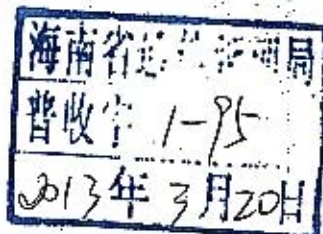 海南省 局
普收字 1-95
2013年3月20日